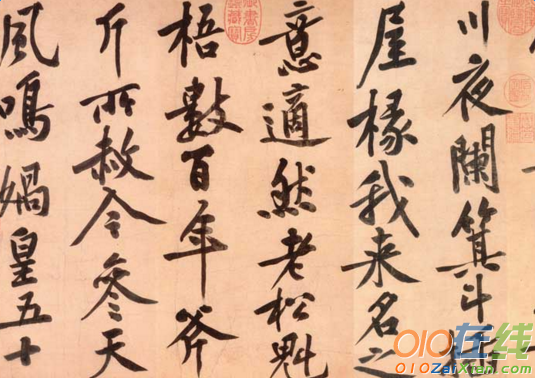 川夜闌箕斗插
屋椽我来名之
意適然老松魁
梧數百年斧
斤所赦今參天
風鳴媧皇五十
010在线
010ZaiXian.com